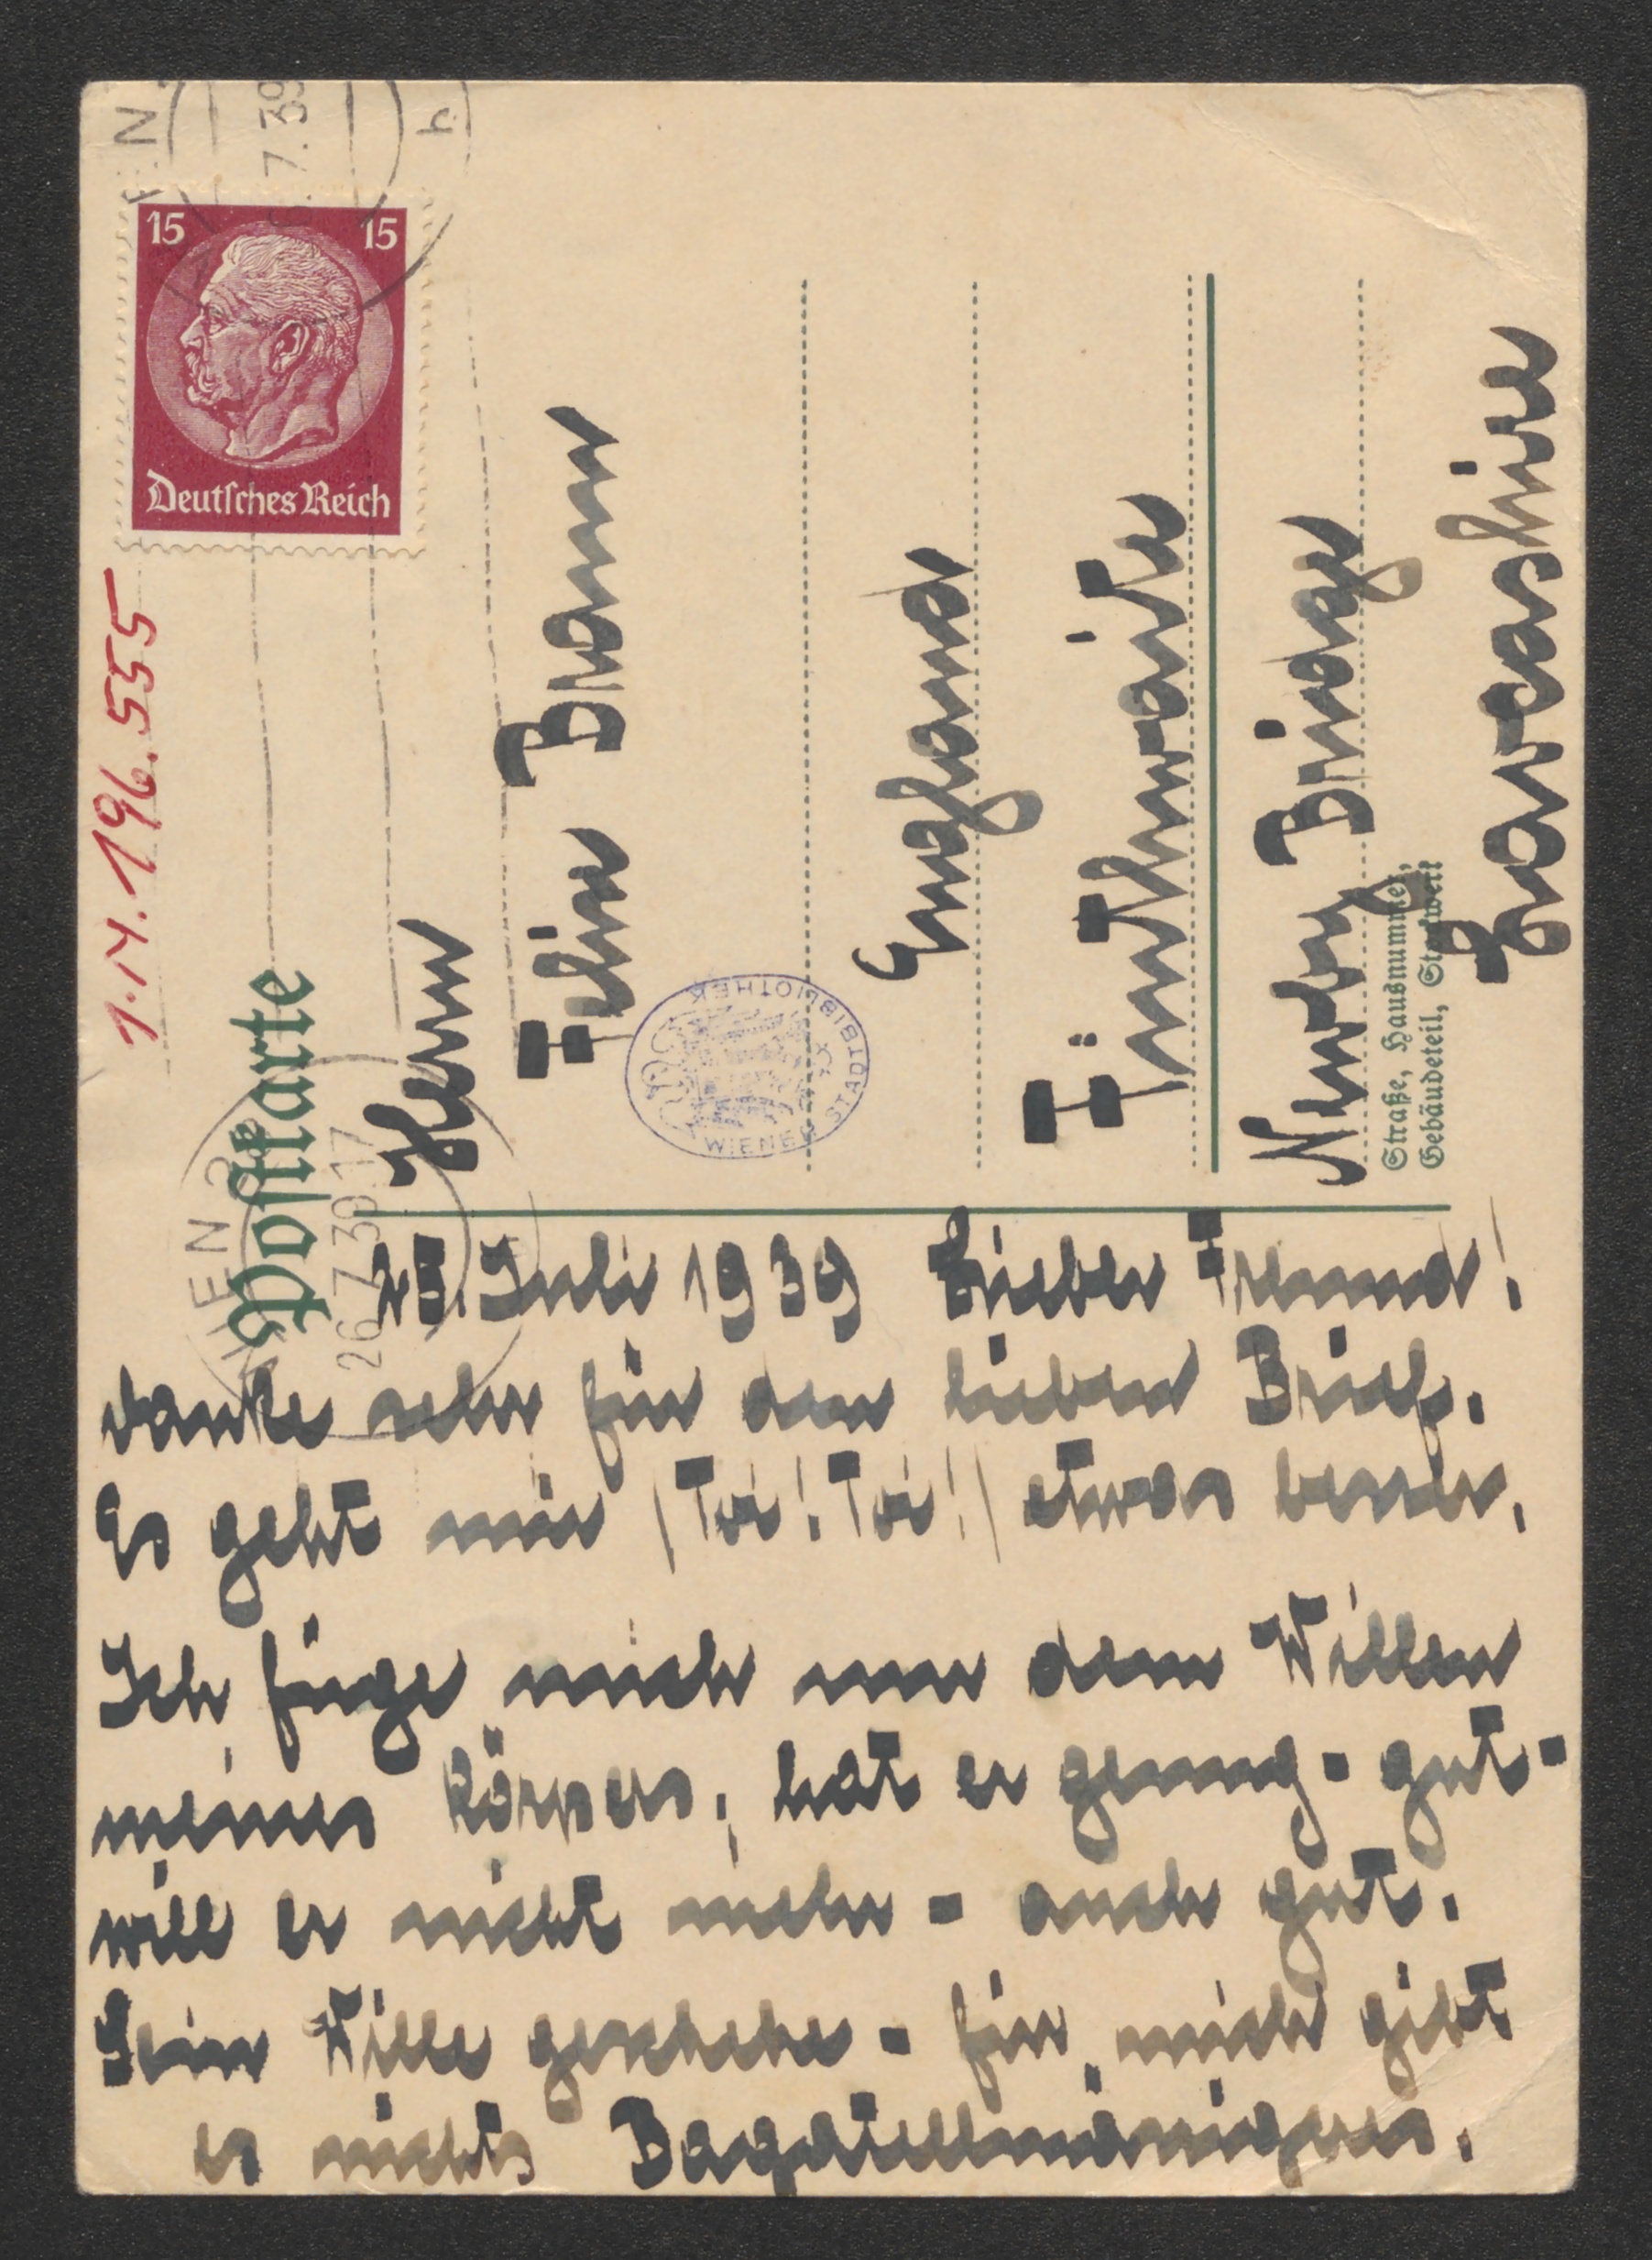 1.N.196.555
15 15
Deutsches Reich
Postkarte
WIEN
26.7.39.17
7.39
Herrn
Felix Braun
England
Finsthwaite
Newby Bridge
Lancashire
Straße, Hausnummer,
Gebäudeteil, Stockwerk
WIENER STADTBIBLIOTHEK
25. Juli 1939 Lieber Freund!
danke sehr für den lieben Brief.
Es geht mir (Toi! Toi!) etwas besser.
Ich füge mich nun dem Willen
meines Körpers, hat er genug - gut -
will er nicht mehr - auch gut.
Sein Wille geschehe - für mich gibt
es nichts Bagatellmäßigeres.